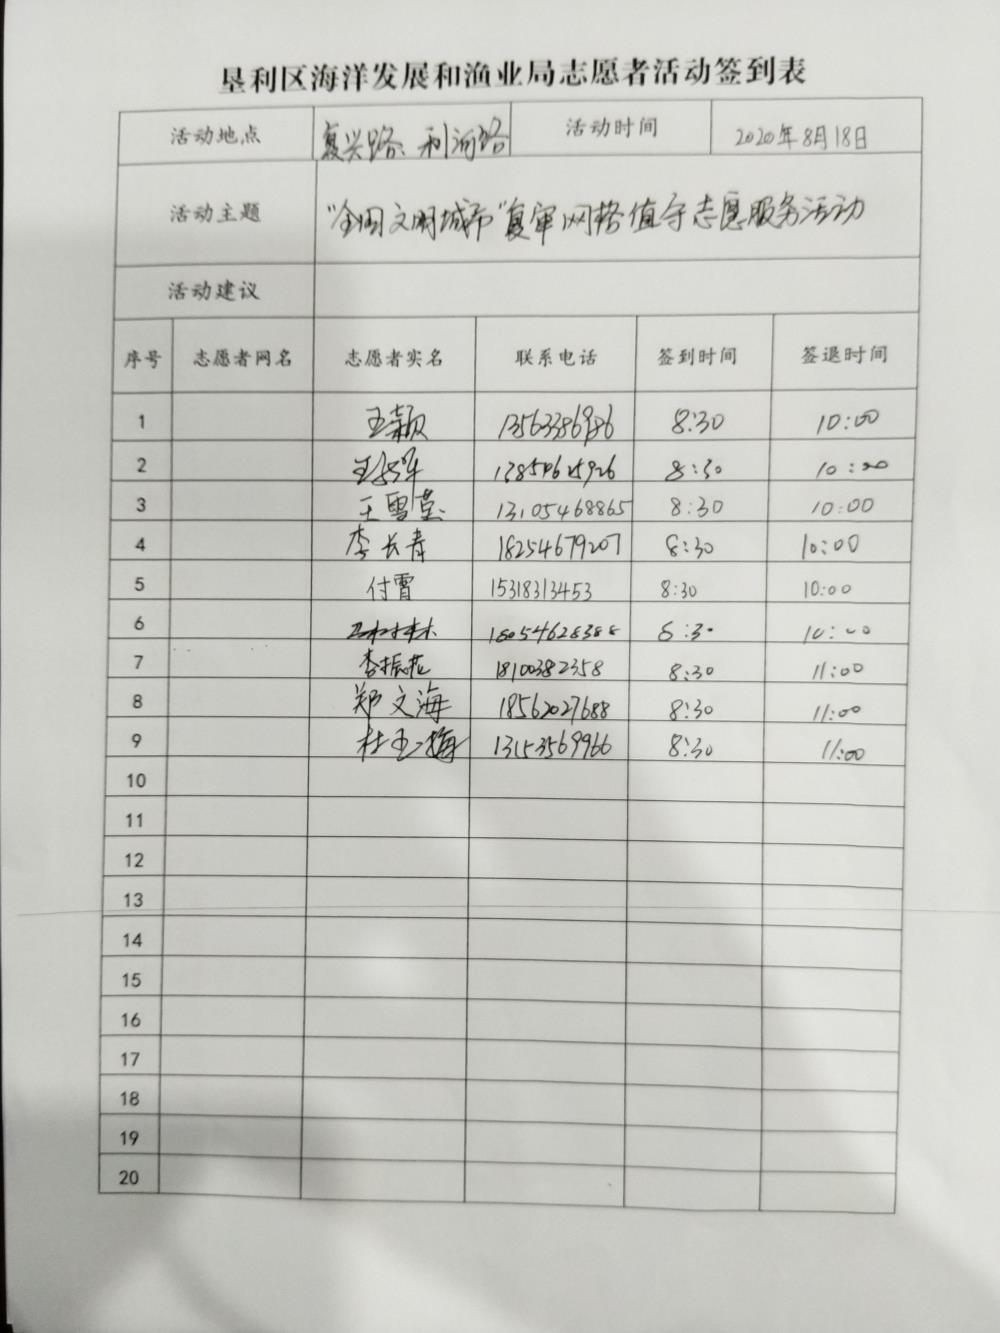 垦利区海洋发展和渔业局志愿者活动签到表
活动地点 复兴路、利河路 活动时间 2020年8月18日
活动主题 "全国文明城市"复审网格值守志愿服务活动
活动建议
序号 志愿者网名 志愿者实名 联系电话 签到时间 签退时间
1 王颖 13563386986 8:30 10:00
2 8:30 10:00
3 王雪莹 13105468865 8:30 10:00
4 李长青 18254679207 8:30 10:00
5 付霄 15318313453 8:30 10:00
6 18054628388 8:30 10:00
7 李振花 18100382358 8:30 11:00
8 郑文海 18562027688 8:30 11:00
9 杜玉梅 13153569966 8:30 11:00
10
11
12
13
14
15
16
17
18
19
20